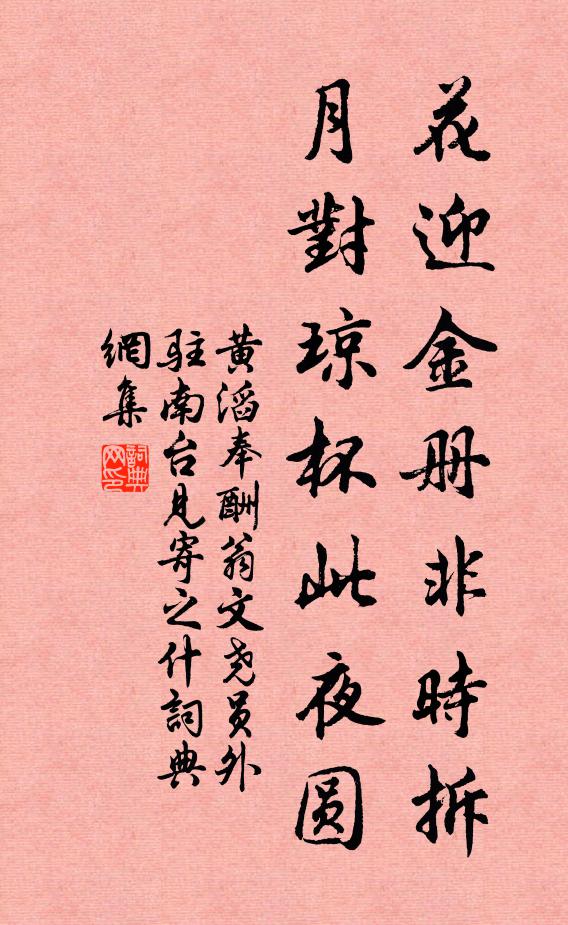 花迎金册非時拆
月對琼杯此夜圆
黄滔奉酬翁文尧员外
驻南台見寄之什詞典
網集
詞典
网印